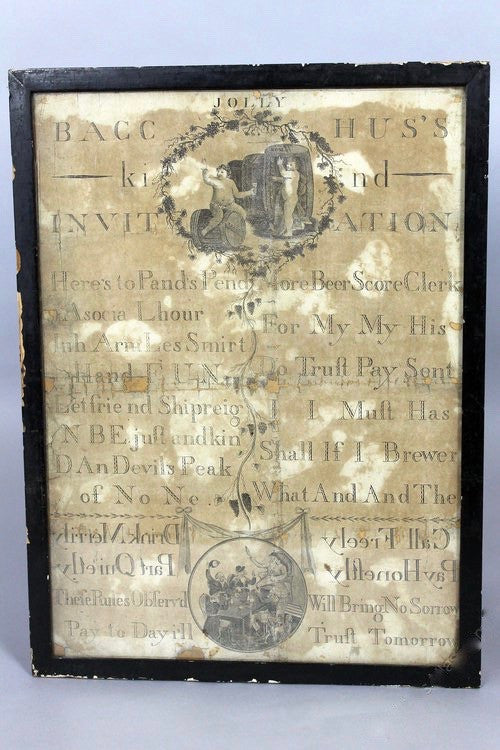 JOLLY
BACC HUS'S
ki nd
INVIT ATION,
Here's to Pand's Pend
Asocia L hour
Inh Arm Les Smirt
Hand F U N
Let frie nd Shipreig
N B E just and kin
D An Devils Peak
of No Ne
More Beer Score Clerk
For My My His
Do Trust Pay Sent
I I Must Has
Shall If I Brewer
What And And The
Drink Merrily Call Freely
Part Quietly Pay Honestly
These Rules Observ'd Will Bring No Sorrow
Pay to Day i'll Trust Tomorrow